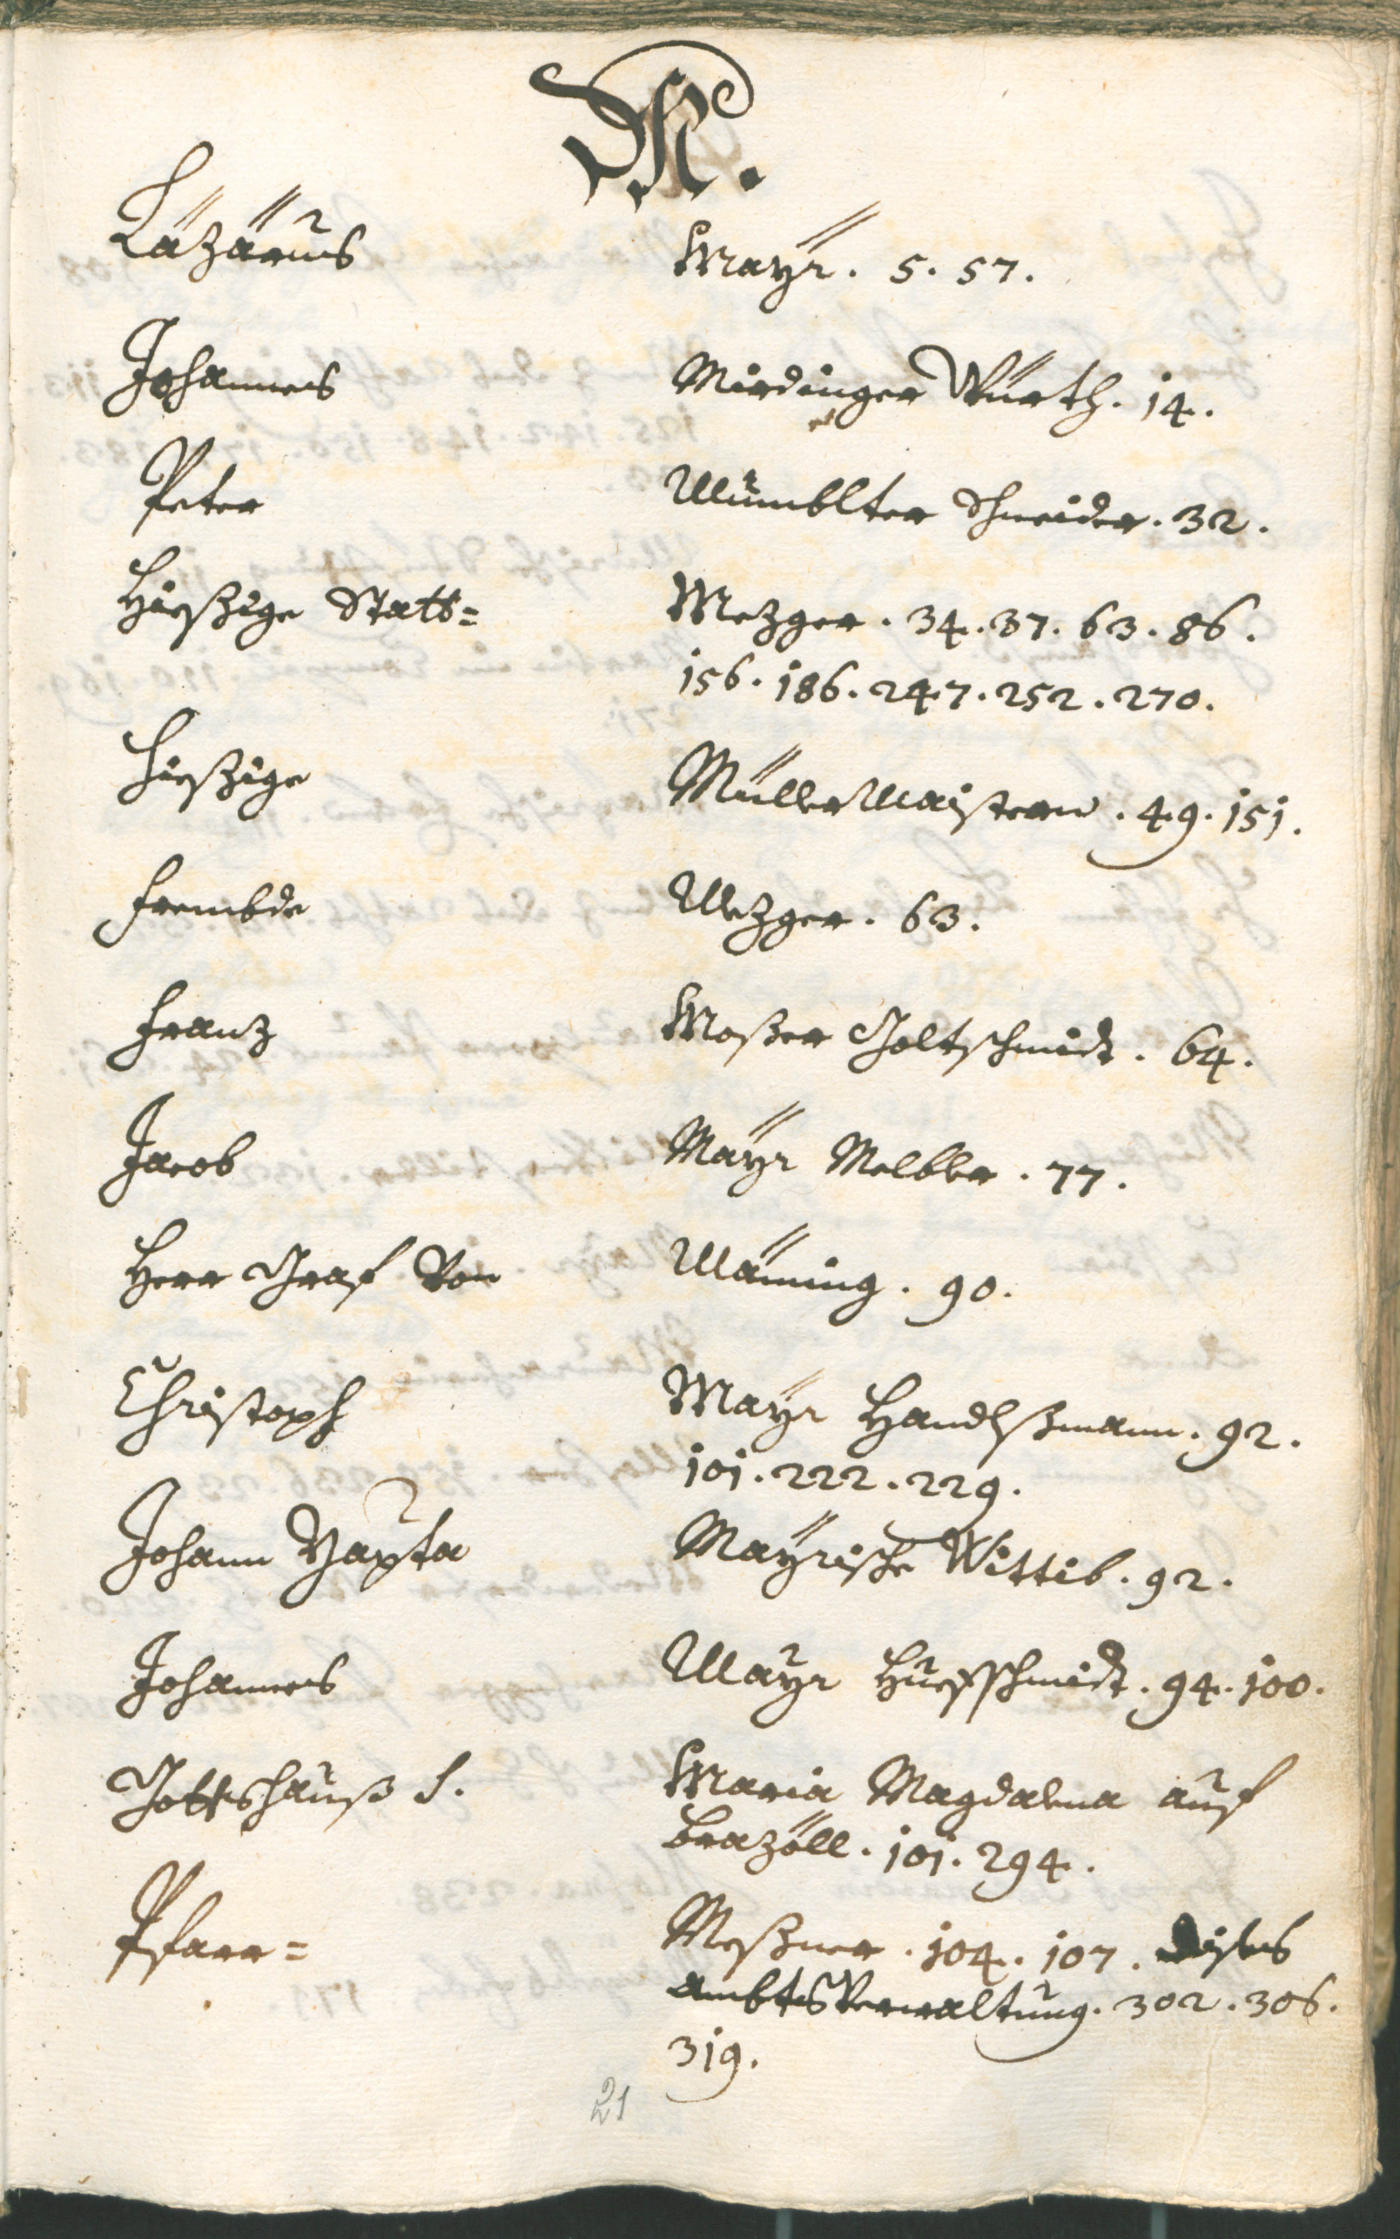 M.
Läzärus Mayr. 5. 57.
Johannes Mirdinger Würth. 14.
Peter Mumblter Schneider. 32.
Hießige Statt= Mezger. 34. 37. 63. 86.
156. 186. 247. 252. 270.
Hießige Müller Maistern. 49. 151.
frembde Mezger. 63.
Franz Moßer Goltschmidt. 64.
Jacob Mayr Melbler. 77.
Herr Graf Von Mäming. 90.
Christoph Mayr Handlßmann. 92.
101. 222. 229.
Johann Bapta Mayrische Wittib. 92.
Johannes Mayr Huefschmidt. 94. 100.
Gottshauß S. Maria Magdalena auf
Brazöll. 101. 294.
Pfarr= Meßner. 104. 107.
Ambts Verwaltung. 302. 306.
319.
21